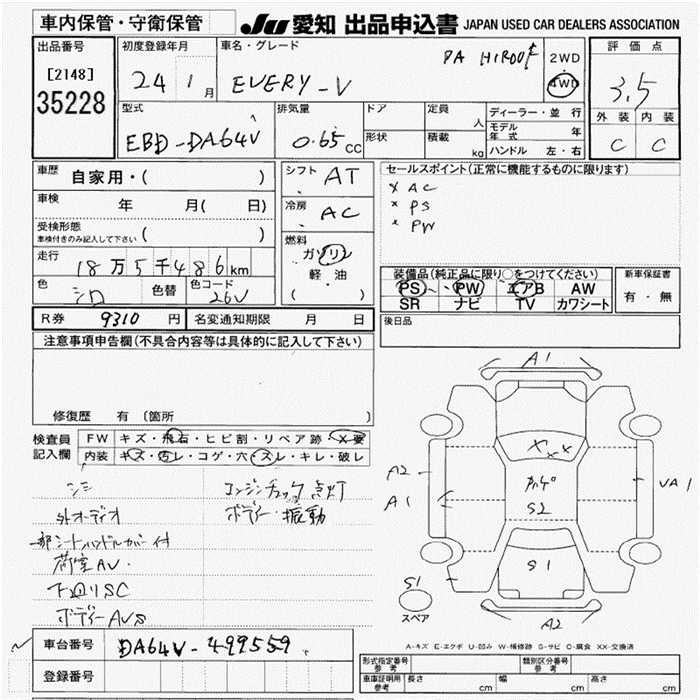 車内保管・守衛保管
JU 愛知 出品申込書 JAPAN USED CAR DEALERS ASSOCIATION
出品番号
[2148]
35228
初度登録年月
24 1 月
車名・グレード
PA HIROOF
EVERY-V
2WD
4WD
評価点
3.5
外装 内装
C C
型式
EBD-DA64V
排気量
0.65 CC
ドア
形状
定員 人
積載 kg
ディーラー・並行
モデル年式 年
ハンドル 左・右
車歴 自家用・( )
車検 年 月( 日)
受検形態
車検付きのみ記入して下さい ( )
走行 18万5千486km
色 シロ 色替 色コード 26V
シフト AT
冷房 AC
燃料
ガソリン
軽・油
( )
セールスポイント(正常に機能するものに限ります)
× AC
× PS
× PW
装備品(純正品に限り○をつけてください)
PS PW エアB AW
SR ナビ TV カワシート
新車保証書
有・無
R券 9310 円 名変通知期限 月 日
後日品
注意事項申告欄(不具合内容等は具体的に記入して下さい)
修復歴 有 〔箇所
検査員記入欄
FW キズ・飛石・ヒビ割・リペア跡・X要
内装 キズ・汚レ・コゲ・穴・スレ・キレ・破レ
シミ
外オーディオ
一部シートハンドルカバー付
荷室AV.
下回りSC
ボディーAVS
エンジンチェック点灯
ボディー振動
A1
A2
A1
S2
VA1
S1
S1
スペア
A2
A-キズ E-エクボ U-凹み W-補修跡 S-サビ C-腐食 XX-交換済
車台番号 DA64V-499559
登録番号
形式指定番号 参考
類別区分番号 参考
車庫証明用 参考 長さ cm 幅 cm 高さ cm